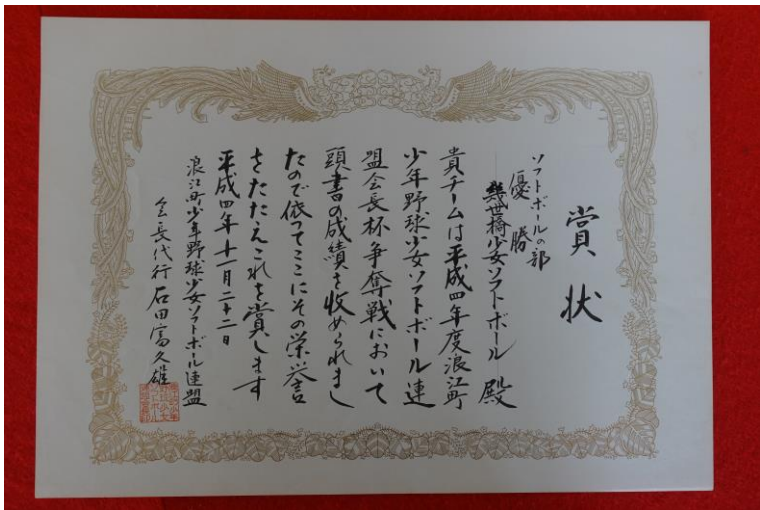 賞状
ソフトボールの部
優勝
幾世橋少女ソフトボール 殿
貴チームは平成四年度浪江町
少年野球少女ソフトボール連
盟会長杯争奪戦において
頭書の成績を收められまし
たので依つてここにその栄誉
をたたえこれを賞します
平成四年十一月二十二日
浪江町少年野球少女ソフトボール連盟
会長代行 石田富久雄